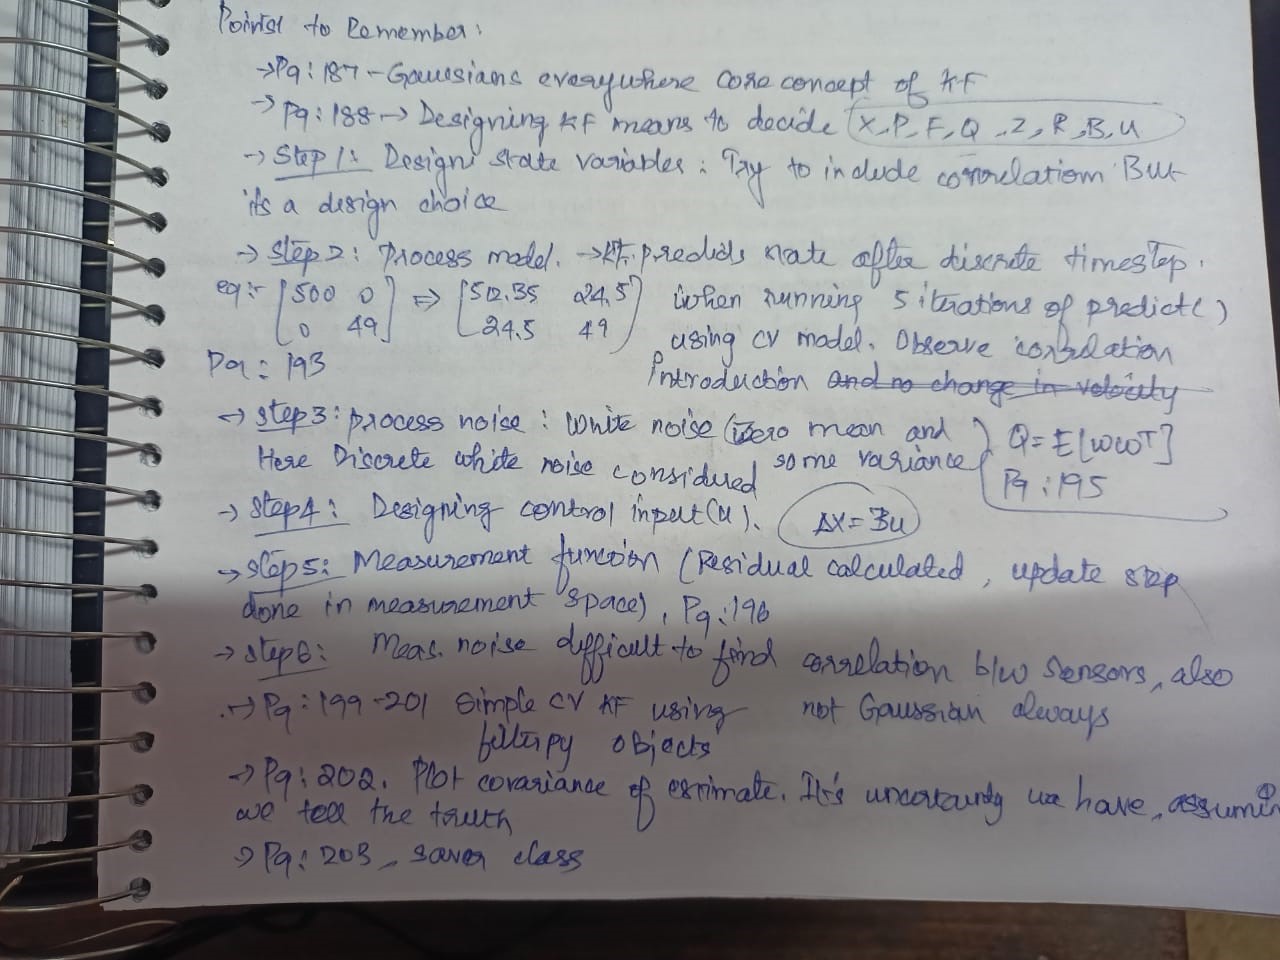 Points to Remember:
→Pg:187-Gaussians everywhere core concept of KF
→Pg:188→ Designing KF means to decide X,P,F,Q,Z,R,B,U
→ Step 1: Design state variables: Try to include correlation But
it's a design choice
→ Step 2: Process model. →KF predicts state after discrete timestep.
eg:- [500 0 ⇒ [512.35 24.5 when running 5 iterations of predict()
0 49] 24.5 49] using CV model. Observe correlation
Pg: 193 Introduction and no change in velocity
→ Step3: process noise: White noise (zero mean and Q=E[wwT]
Here Discrete white noise considered some variance Pg:195
→ Step4: Designing control input(u). ΔX=Bu
→ Step5: Measurement function (Residual calculated, update step
done in measurement space), Pg:196
→ Step6: Meas. noise difficult to find correlation b/w sensors, also
→ Pg:199-201 Simple CV KF using not Gaussian always
filterpy objects
→ Pg:202. Plot covariance of estimate. It's uncertainty we have, assuming
we tell the truth
→ Pg:203, saver class